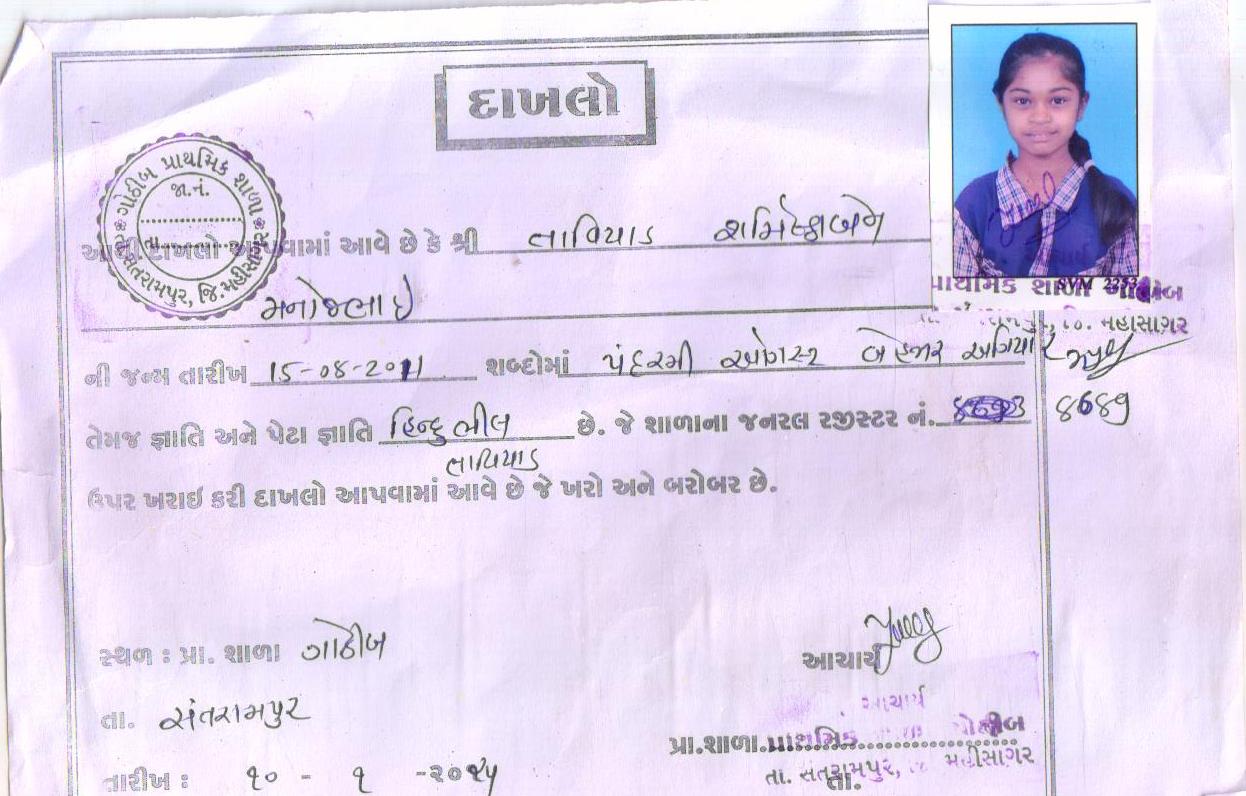 દાખલો
ગોઠીબ પ્રાથમિક શાળા
જા.નં.
તા.
સંતરામપુર, જિ.મહીસાગર
આથી દાખલો આપવામાં આવે છે કે શ્રી તાવિયાડ શર્મિષ્ઠાબેન
મનોજભાઈ
SVM 2253
પ્રાથમિક શાળા ગોઠીબ
ની જન્મ તારીખ 15-08-2011 શબ્દોમાં પંદરમી ઓગસ્ટ બે હજાર અગિયાર
તેમજ જ્ઞાતિ અને પેટા જ્ઞાતિ હિન્દુ ભીલ છે. જે શાળાના જનરલ રજીસ્ટર નં. 8689
તાવિયાડ
ઉપર ખરાઇ કરી દાખલો આપવામાં આવે છે જે ખરો અને બરોબર છે.
સ્થળ : પ્રા. શાળા ગોઠીબ
આચાર્ય
તા. સંતરામપુર
આચાર્ય
પ્રા.શાળા. પ્રાથમિક ગોઠીબ
તા. સંતરામપુર, મહીસાગર
તા.
તારીખ : ૧૦ - ૧ -૨૦૨૫